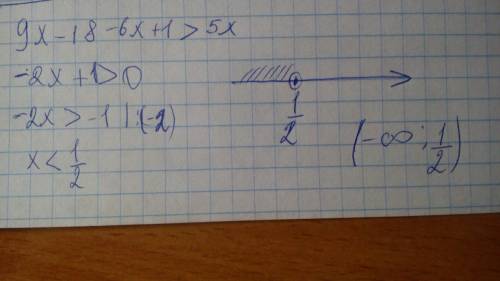 9x-18-6x+1>5x
-2x+1>0
-2x>-1 |:(-2)
x<1/2
1/2
(-∞; 1/2)